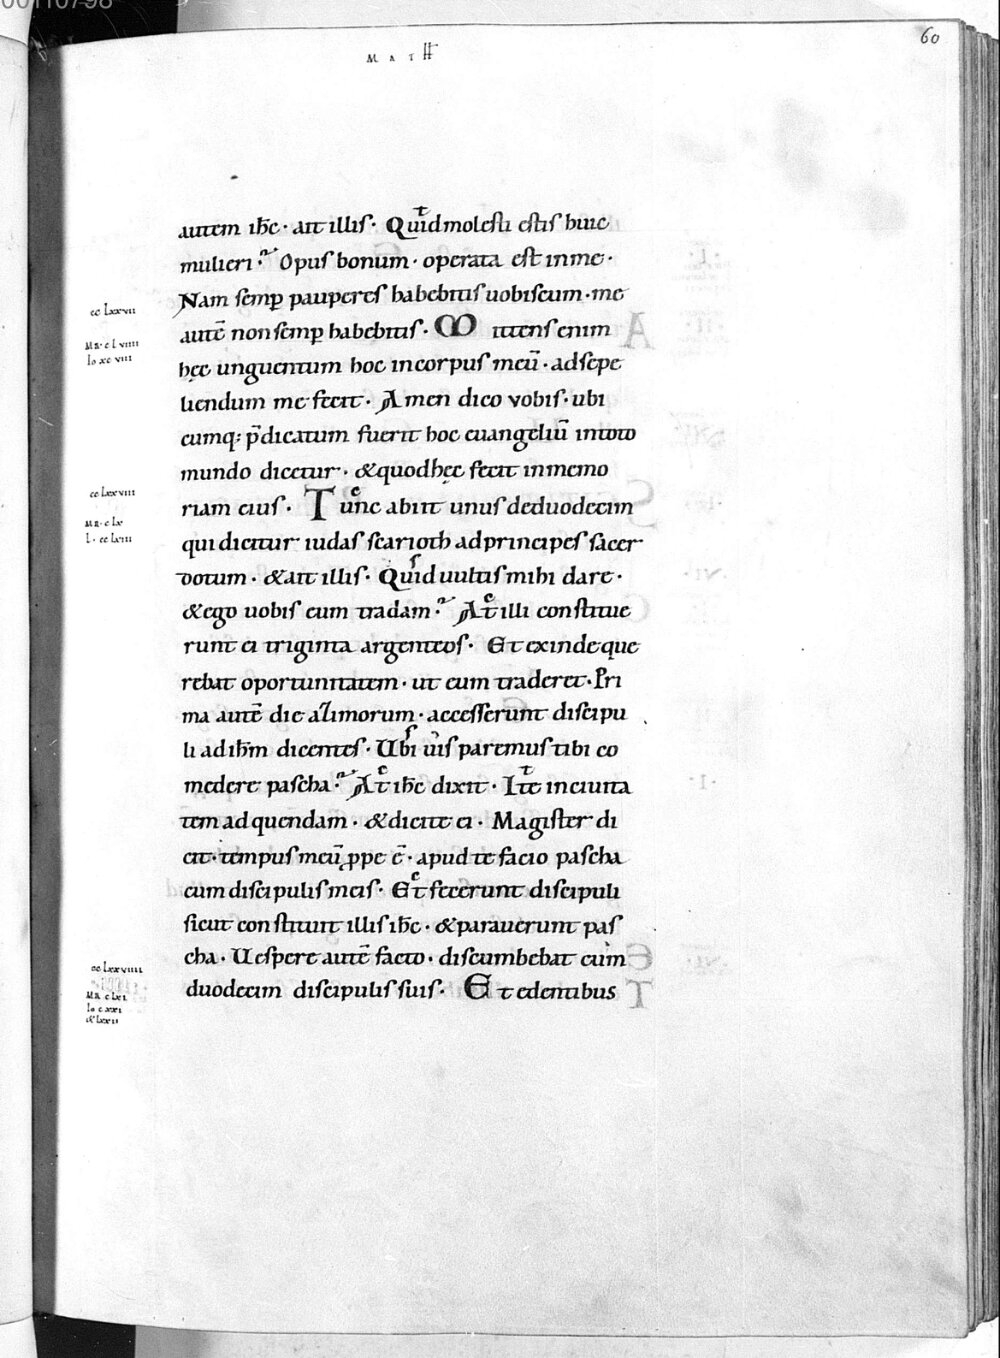 60
MATH
autem ihc · ait illis · Quid molesti estis huic
mulieri · Opus bonum · operata est in me ·
Nam semp pauperes habebitis uobiscum · me
autē non semp habebitis · Mittens enim
hęc unguentum hoc in corpus meū · ad sepe
liendum me fecit · Amen dico vobis · ubi
cumq; p̄dicatum fuerit hoc euangeliū in toto
mundo dicetur · & quod hęc fecit in memo
riam eius · Tunc abiit unus de duodecim
qui dicitur iudas scarioth ad principes sacer
dotum · & ait illis · Quid uultis mihi dare ·
& ego uobis eum tradam · At illi constitue
runt ei triginta argenteos · Et exinde que
rebat oportunitatem · ut eum traderet · Pri
ma autē die azimorum · accesserunt discipu
li ad ihm dicentes · Ubi uis paremus tibi co
medere pascha · At ihc dixit · Ite in ciuita
tem ad quendam · & dicite ei · Magister di
cit · tempus meū ꝓpe ē · apud te facio pascha
cum discipulis meis · Et fecerunt discipuli
sicut constituit illis ihc · & parauerunt pas
cha · Uespere autē facto · discumbebat cum
duodecim discipulis suis · Et edentibus
cc lxxvii
MR · c l viiii
Io xc viii
cc lxxviii
MR · c lx
L · cc lxiii
cc lxxviiii
MR c lxi
Io c xxi
& lxxii